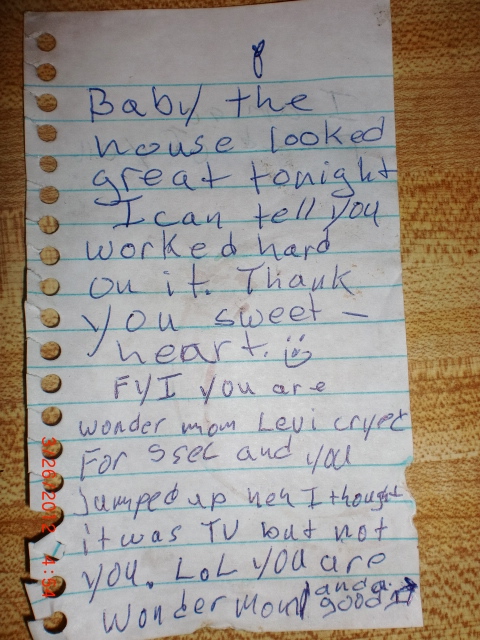 Baby the
house looked
great tonight
I can tell you
worked hard
on it. Thank
you sweet -
heart.
FYI you are
wonder mom Levi cryed
For 5sec and you
Jumped up heh I thought
it was TV but not
you. LoL you are
Wonder Mom and a
good